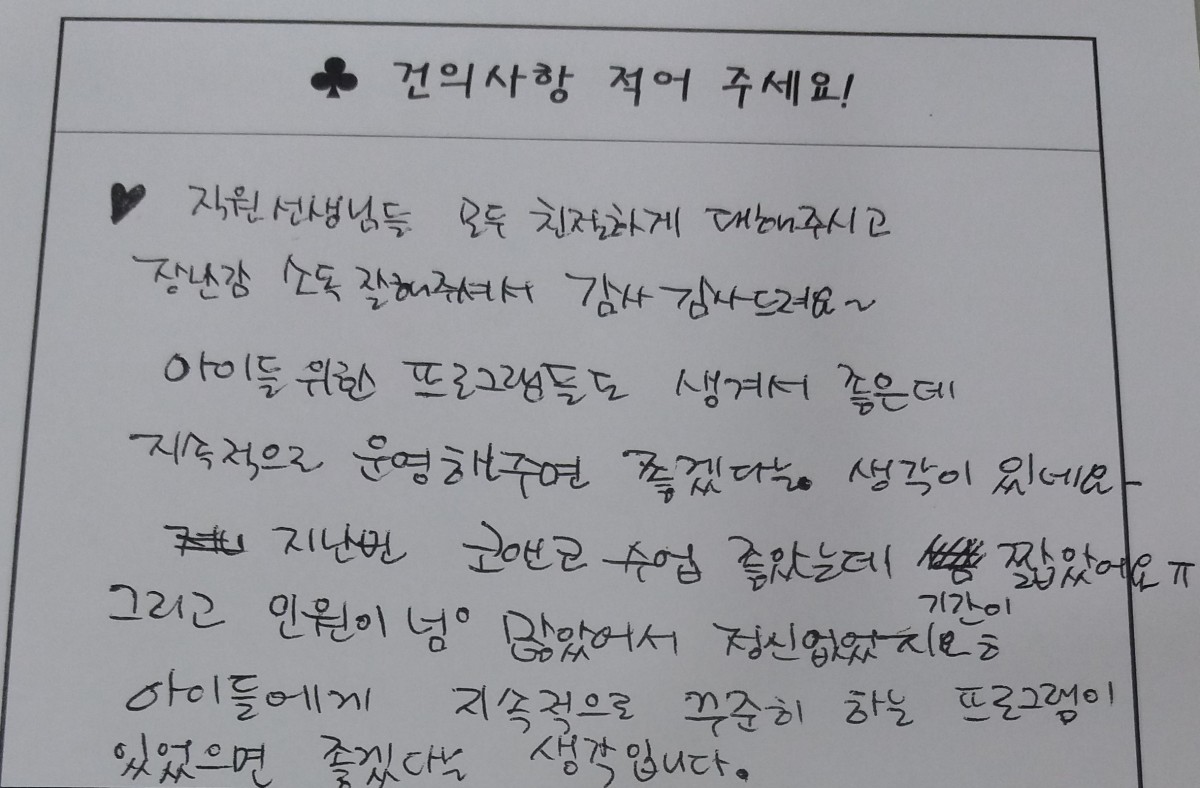 ♣ 건의사항 적어 주세요!
♥ 직원선생님들 모두 친절하게 대해주시고
장난감 소독 잘해주셔서 감사 감사드려요~
아이들 위한 프로그램들도 생겨서 좋은데
지속적으로 운영해주면 좋겠다는 생각이 있네요-
지난번 코앤코 수업 좋았는데 짧았어요 ㅠ
기간이
그리고 인원이 넘 많았어서 정신없었지요ㅎ
아이들에게 지속적으로 꾸준히 하는 프로그램이
있었으면 좋겠다는 생각입니다.